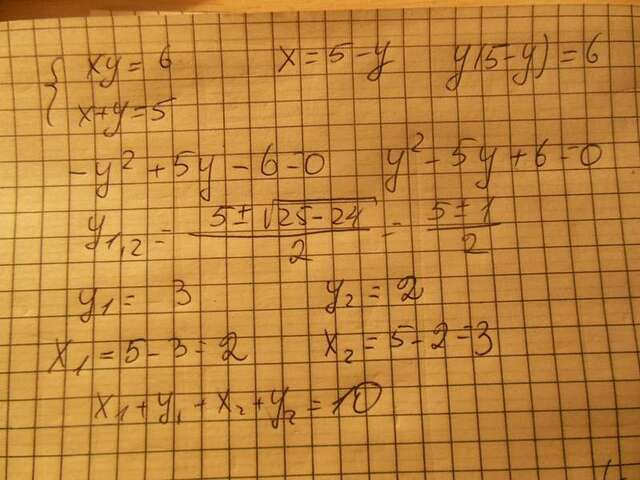 { xy = 6    x = 5 - y    y(5-y) = 6
x+y=5
-y² + 5y - 6 = 0    y² - 5y + 6 = 0
y₁,₂ = (5 ± √(25-24))/2 = (5 ± 1)/2
y₁ = 3    y₂ = 2
x₁ = 5 - 3 = 2    x₂ = 5 - 2 = 3
x₁ + y₁ + x₂ + y₂ = 10